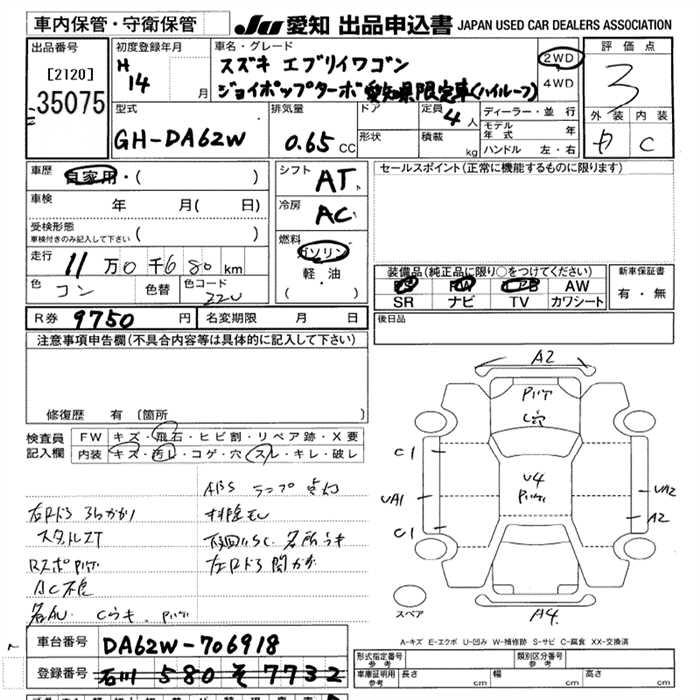 車内保管・守衛保管
JU 愛知 出品申込書 JAPAN USED CAR DEALERS ASSOCIATION
出品番号
[2120]
35075
初度登録年月
H 14 月
車名・グレード
スズキ エブリイワゴン
ジョイポップターボ愛知県限定車(ハイルーフ)
2WD
4WD
評価点
3
外装 内装
C
型式
GH-DA62W
排気量
0.65 CC
ドア
形状
定員 4 人
積載 kg
ディーラー・並行
モデル年式 年
ハンドル 左・右
車歴 自家用・( )
車検 年 月( 日)
受検形態
車検付きのみ記入して下さい ( )
走行 11 万 0 千 6 80 km
色 コン 色替 色コード ZZU
シフト AT
冷房 AC
燃料
ガソリン
軽・油
( )
セールスポイント(正常に機能するものに限ります)
装備品(純正品に限り○をつけてください)
PS PW AB AW
SR ナビ TV カワシート
新車保証書
有・無
R券 9750 円 名変期限 月 日
後日品
注意事項申告欄(不具合内容等は具体的に記入して下さい)
修復歴 有 〔箇所 〕
検査員記入欄
FW キズ・飛石・ヒビ割・リペア跡・X要
内装 キズ・汚レ・コゲ・穴・スレ・キレ・破レ
ABSランプ点灯
スタッドレス
AC不良
A2
C穴
C1
U4
UA1
UA2
C1
A2
A4
スペア
A-キズ E-エクボ U-凹み W-補修跡 S-サビ C-腐食 XX-交換済
車台番号 DA62W-706918
登録番号 石川 580 そ 7732
形式指定番号 参考
類別区分番号 参考
車庫証明用 参考 長さ cm 幅 cm 高さ cm